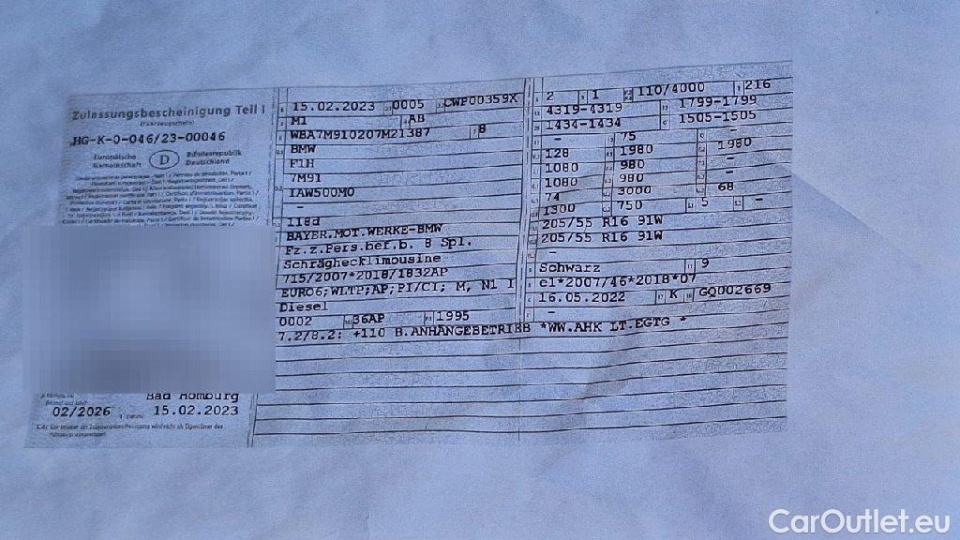 Zulassungsbescheinigung Teil I
(Fahrzeugschein)
HG-K-0-046/23-00046
Europäische Gemeinschaft D Bundesrepublik Deutschland
Bad Homburg
02/2026 15.02.2023
15.02.2023 0005 CWP00359X
M1 AB
WBA7M910207M21387 8
BMW
F1H
7M91
1AW500M0
–
118d
BAYER.MOT.WERKE-BMW
Fz.z.Pers.bef.b. 8 Spl.
Schräghecklimousine
715/2007*2018/1832AP
EURO6;WLTP;AP;PI/CI; M, N1 I
Diesel
0002 36AP 1995
7.2/8.2: +110 B.ANHÄNGEBETRIEB *WW.AHK LT.EGTG *
2 1 110/4000 216
4319-4319 1799-1799
1434-1434 1505-1505
– 75 –
128 1980 1980
1080 980 –
1080 980 –
74 3000 68
1300 750 5 –
205/55 R16 91W
205/55 R16 91W
–
Schwarz 9
e1*2007/46*2018*07
16.05.2022 K GQ002669
–
CarOutlet.eu